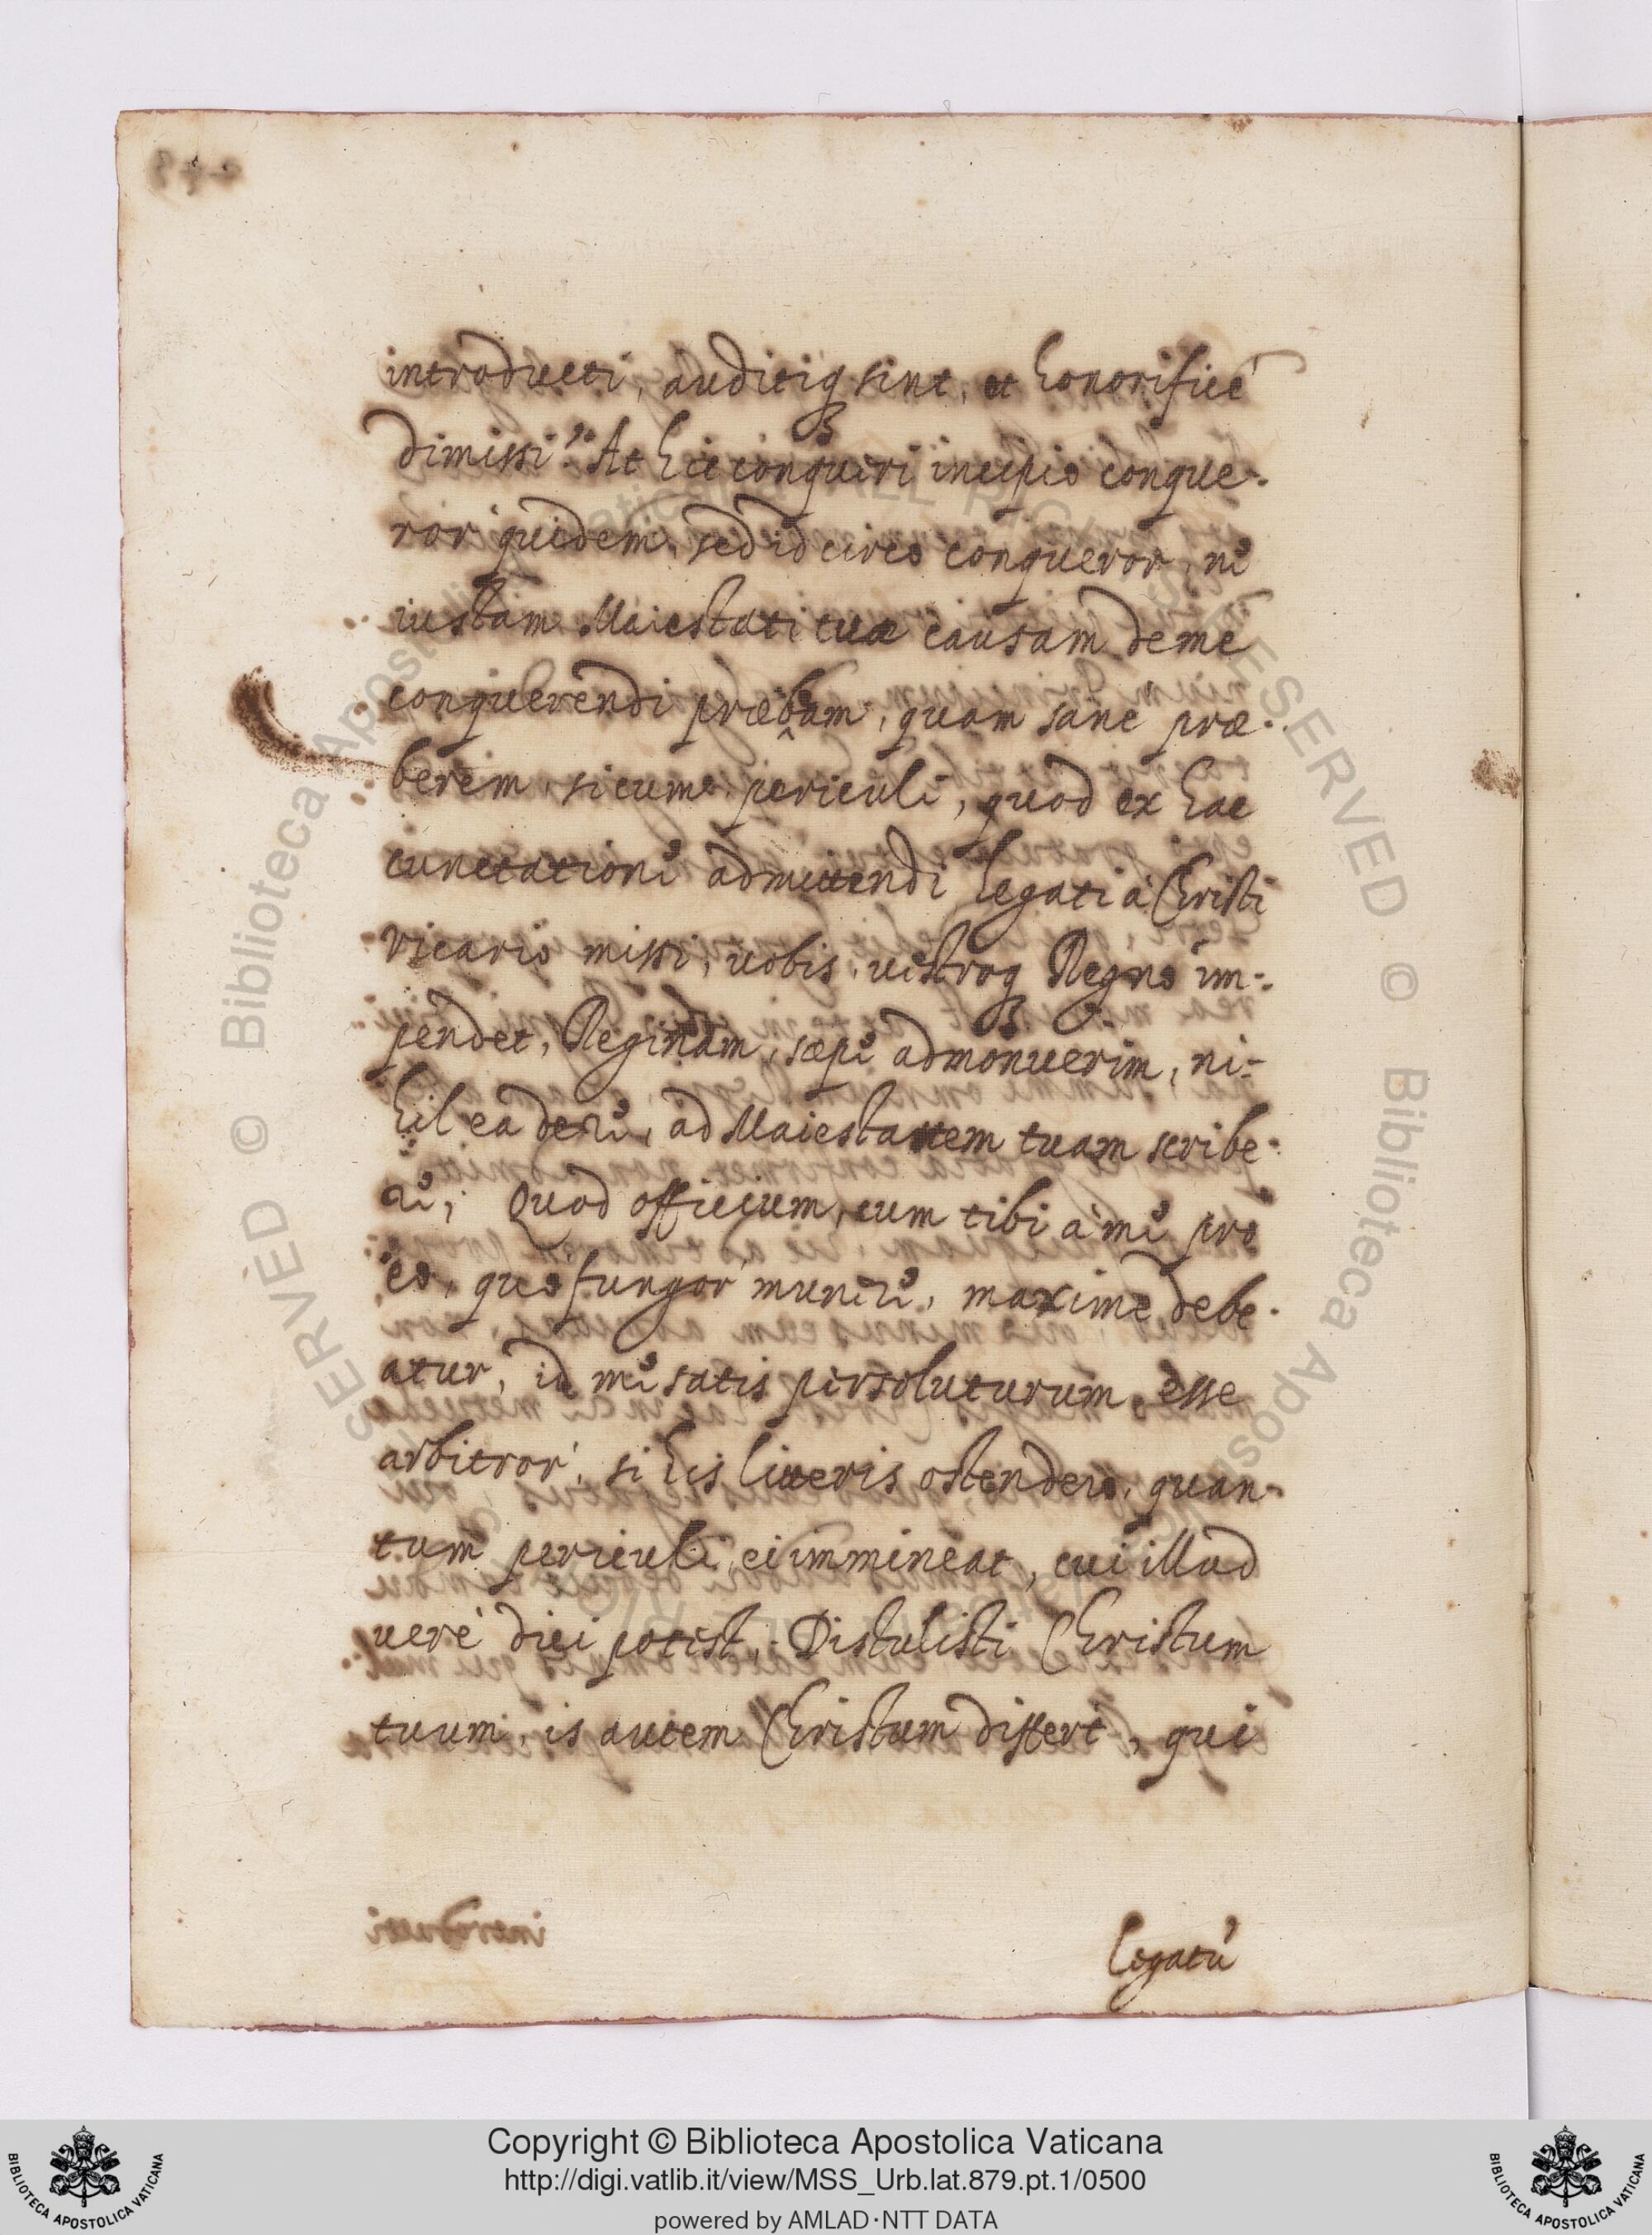 introducti, auditiq₃ sint, et honorificè
dimissi? At hic conqueri incipio conque-
ror quidem, sed idcirco conqueror, ne
iustam Maiestati tuæ causam de me
conquerendi præbeam, quam sane præ-
berem, si cum periculi, quod ex hac
cunctatione admittendi Legati à Christi
Vicario missi, vobis, vestroq₃ Regno im-
pendet, Reginam, sæpe admonuerim, ni-
hil ea de re, ad Maiestatem tuam scribe-
re; Quod officium, cum tibi à me pro
eo, quo fungor munere, maxime debe-
atur, id me satis persoluturum esse
arbitror, si his litteris ostendero, quan-
tum periculi ei immineat, cui illud
verè dici potest, Distulisti Christum
tuum, is autem Christum differt, qui
Legatū
Copyright © Biblioteca Apostolica Vaticana
http://digi.vatlib.it/view/MSS_Urb.lat.879.pt.1/0500
powered by AMLAD·NTT DATA